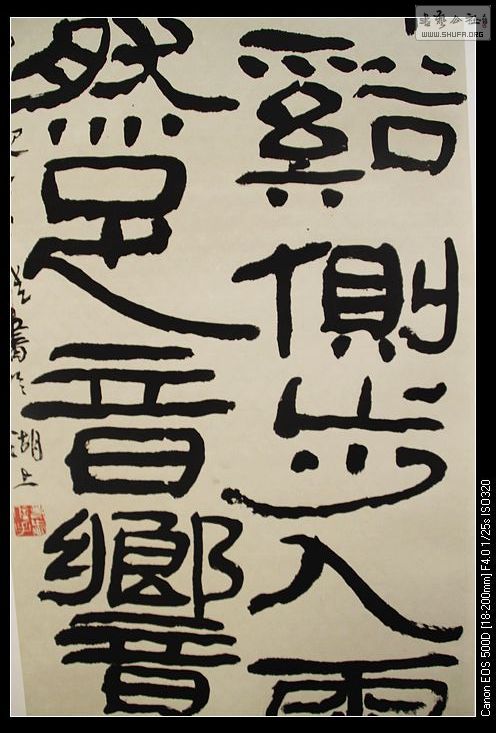 谿側步入雨
然足音響
湖上
書艺公社
WWW.SHUFA.ORG
Canon EOS 500D [18-200mm] F4.0 1/25s ISO320